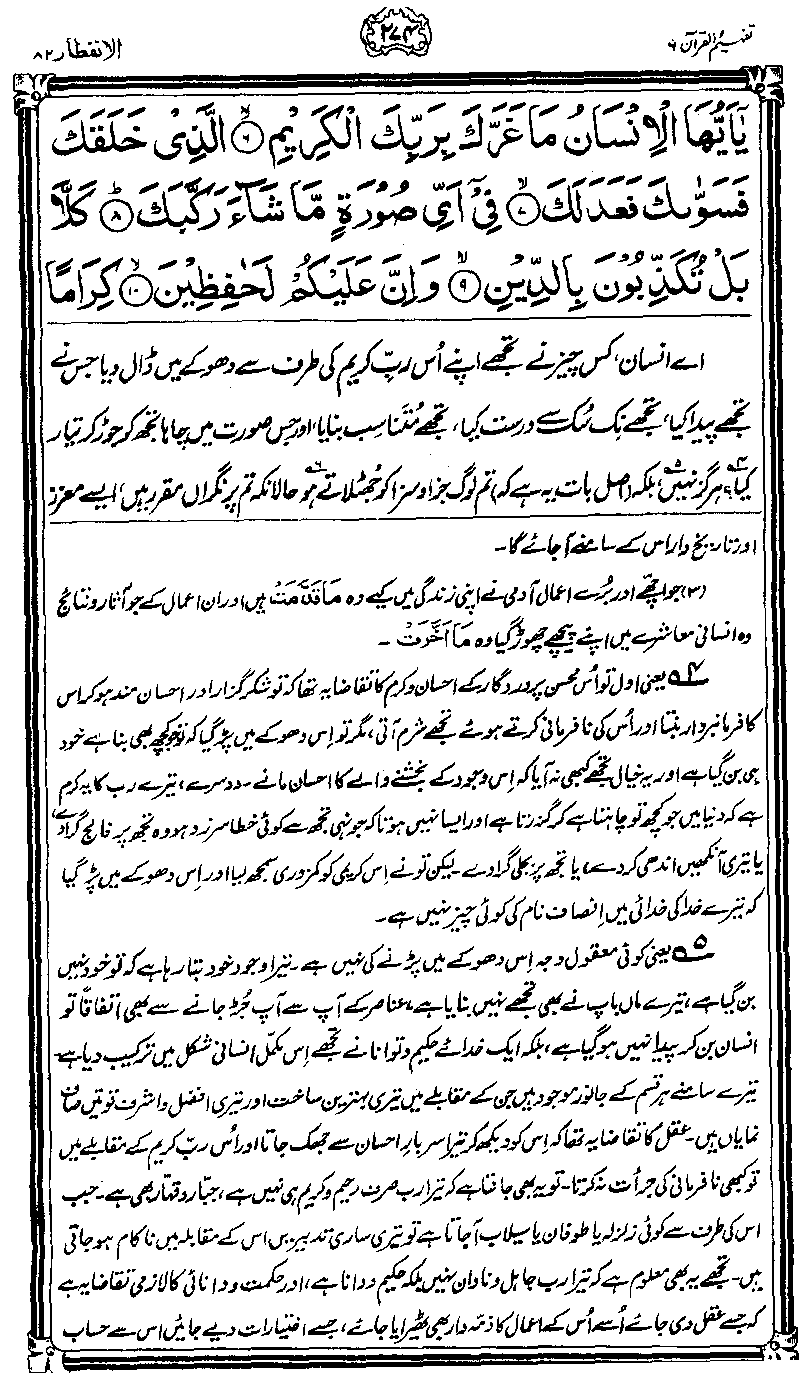 تفہیم القرآن ۶
۲۷۴
الانفطار ۸۲
يٰۤاَيُّهَا الْاِنْسَانُ مَا غَرَّكَ بِرَبِّكَ الْكَرِيْمِ ۙ﴿۶﴾ الَّذِيْ خَلَقَكَ
فَسَوّٰىكَ فَعَدَلَكَ ۙ﴿۷﴾ فِيْۤ اَيِّ صُوْرَةٍ مَّا شَآءَ رَكَّبَكَ ؕ﴿۸﴾ كَلَّا
بَلْ تُكَذِّبُوْنَ بِالدِّيْنِ ۙ﴿۹﴾ وَاِنَّ عَلَيْكُمْ لَحٰفِظِيْنَ ۙ﴿۱۰﴾ كِرَامًا
اے انسان، کس چیز نے تجھے اپنے اُس ربِّ کریم کی طرف سے دھوکے میں ڈال دیا جس نے
تجھے پیدا کیا، تجھے نِک سُک سے درست کیا، تجھے مُتَناسِب بنایا، اور جس صورت میں چاہا تجھ کو جوڑ کر تیار
کیا؟۴ ہرگز نہیں،۵ بلکہ (اصل بات یہ ہے کہ) تم لوگ جزا و سزا کو جُھٹلاتے ہو،۶ حالانکہ تم پر نگراں مقرر ہیں، ایسے معزز
اور تاریخ وار اس کے سامنے آجائے گا۔
(۳) جو اچھے اور بُرے اعمال آدمی نے اپنی زندگی میں کیے وہ مَا قَدَّمَتْ ہیں اور ان اعمال کے جو آثار و نتائج
وہ انسانی معاشرے میں اپنے پیچھے چھوڑ گیا وہ مَا اَخَّرَتْ ۔
۴ یعنی اول تو اُس محسن پروردگار کے احسان و کرم کا تقاضا یہ تھا کہ تو شکر گزار اور احسان مند ہو کر اس
کا فرمانبردار بنتا اور اُس کی نافرمانی کرتے ہوئے تجھے شرم آتی، مگر تو اِس دھوکے میں پڑ گیا کہ تو جو کچھ بھی بنا ہے خود
ہی بن گیا ہے اور یہ خیال تجھے کبھی نہ آیا کہ اِس وجود کے بخشنے والے کا احسان مانے۔ دوسرے، تیرے رب کا یہ کرم
ہے کہ دنیا میں جو کچھ تو چاہتا ہے کر گزرتا ہے اور ایسا نہیں ہوتا کہ جونہی تجھ سے کوئی خطا سرزد ہو وہ تجھ پر فالج گرا دے،
یا تیری آنکھیں اندھی کر دے، یا تجھ پر بجلی گرا دے۔ لیکن تو نے اِس کریمی کو کمزوری سمجھ لیا اور اِس دھوکے میں پڑ گیا
کہ تیرے خدا کی خدائی میں انصاف نام کی کوئی چیز نہیں ہے۔
۵ یعنی کوئی معقول وجہ اِس دھوکے میں پڑنے کی نہیں ہے۔ تیرا وجود خود بتا رہا ہے کہ تو خود نہیں
بن گیا ہے، تیرے ماں باپ نے بھی تجھے نہیں بنایا ہے، عناصر کے آپ سے آپ جُڑ جانے سے بھی اتفاقاً تو
انسان بن کر پیدا نہیں ہو گیا ہے، بلکہ ایک خدائے حکیم و توانا نے تجھے اِس مکمل انسانی شکل میں ترکیب دیا ہے۔
تیرے سامنے ہر قسم کے جانور موجود ہیں جن کے مقابلے میں تیری بہترین ساخت اور تیری افضل و اشرف قوتیں صاف
نمایاں ہیں۔ عقل کا تقاضا یہ تھا کہ اِس کو دیکھ کر تیرا سر بارِ احسان سے جھک جاتا اور اُس ربِّ کریم کے مقابلے میں
تو کبھی نافرمانی کی جرأت نہ کرتا۔ تو یہ بھی جانتا ہے کہ تیرا رب صرف رحیم و کریم ہی نہیں ہے، جبار و قہار بھی ہے۔ جب
اس کی طرف سے کوئی زلزلہ یا طوفان یا سیلاب آجاتا ہے تو تیری ساری تدبیریں اس کے مقابلہ میں ناکام ہو جاتی
ہیں۔ تجھے یہ بھی معلوم ہے کہ تیرا رب جاہل و نادان نہیں بلکہ حکیم و دانا ہے، اور حکمت و دانائی کا لازمی تقاضا یہ ہے
کہ جسے عقل دی جائے اُسے اُس کے اعمال کا ذمہ دار بھی ٹھیرایا جائے، جسے اختیارات دیے جائیں اس سے حساب